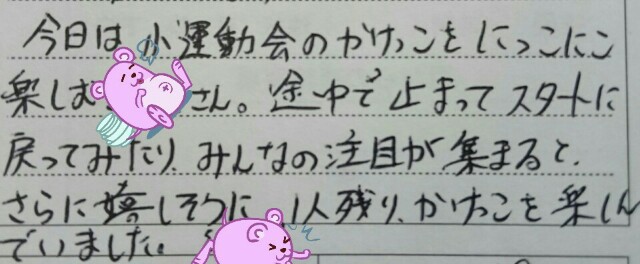 今日は小運動会のかけっこをにっこにこ
楽しむ さん。途中で止まってスタートに
戻ってみたり、みんなの注目が集まると、
さらに嬉しそうに、1人残り、かけっこを楽しん
でいました。